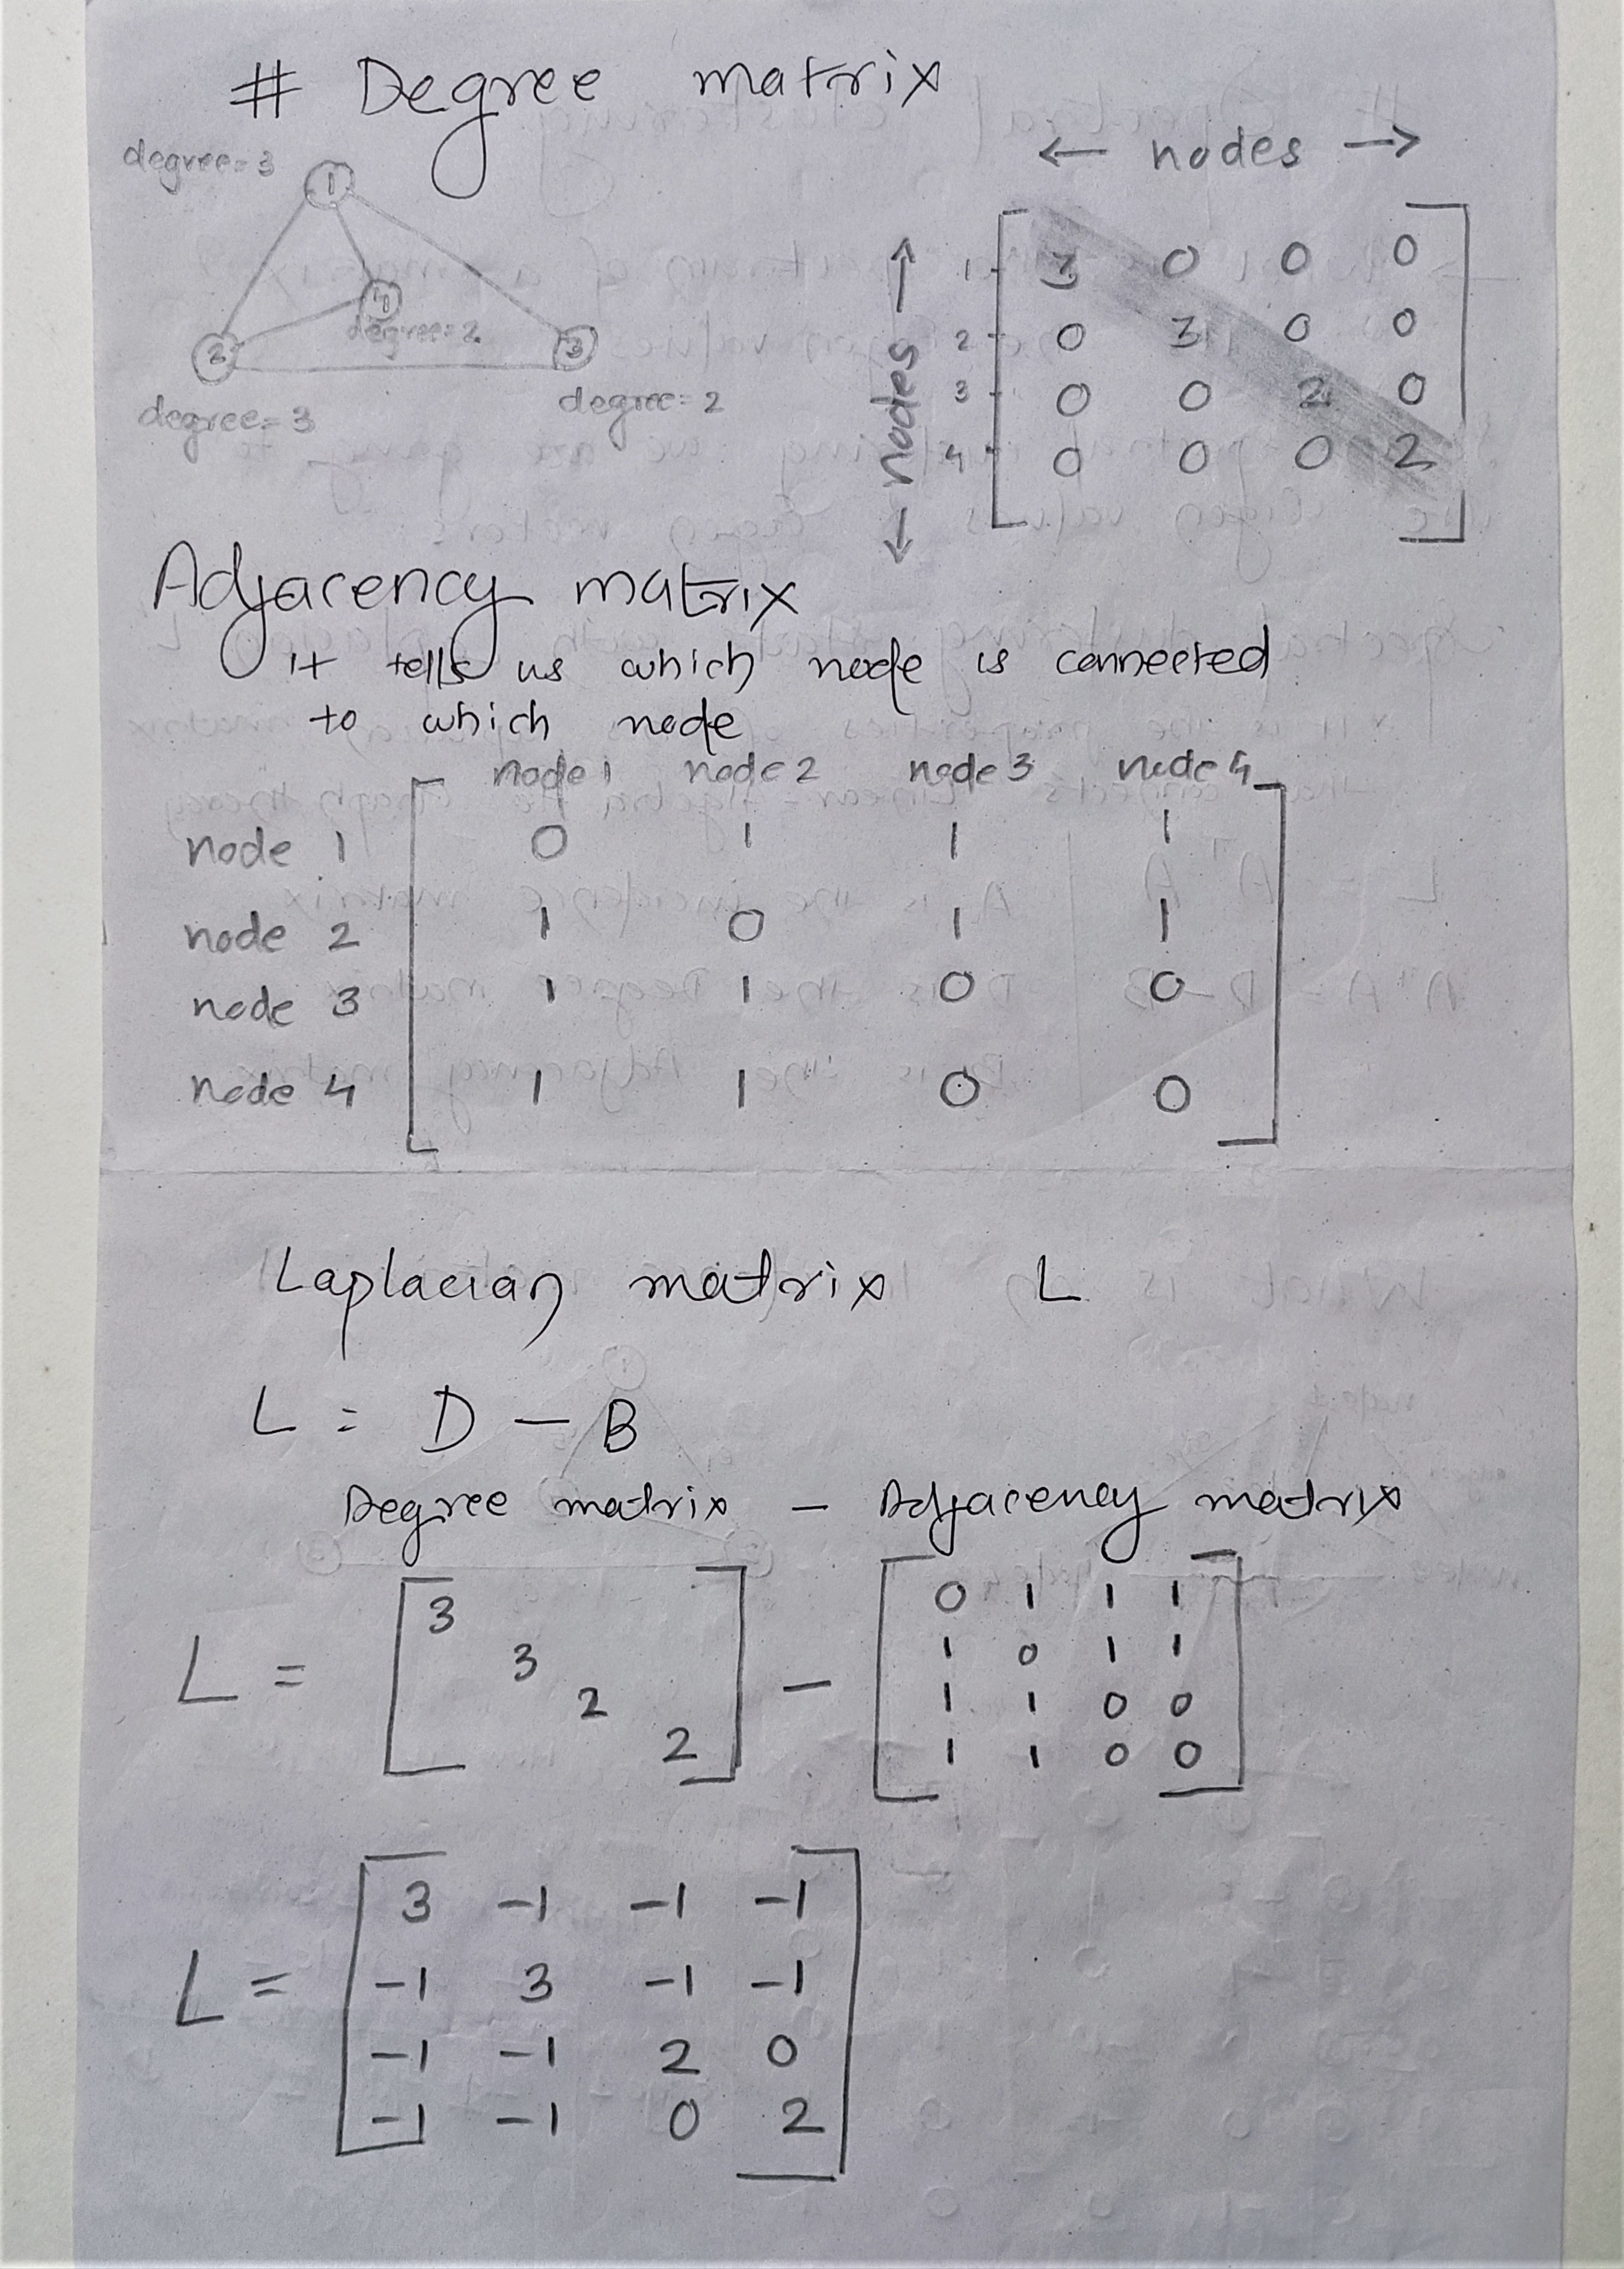 # Degree matrix
degree=3
1
4
degree=2
2
3
degree=3
degree=2
← nodes →
← nodes →
1 3 0 0 0
2 0 3 0 0
3 0 0 2 0
4 0 0 0 2
Adjacency matrix
it tells us which node is connected
to which node
node 1 node 2 node 3 node 4
node 1 0 1 1 1
node 2 1 0 1 1
node 3 1 1 0 0
node 4 1 1 0 0
Laplacian matrix L
L = D - B
Degree matrix - Adjacency matrix
L = [3 3 2 2] - [0 1 1 1
1 0 1 1
1 1 0 0
1 1 0 0]
L = [3 -1 -1 -1
-1 3 -1 -1
-1 -1 2 0
-1 -1 0 2]